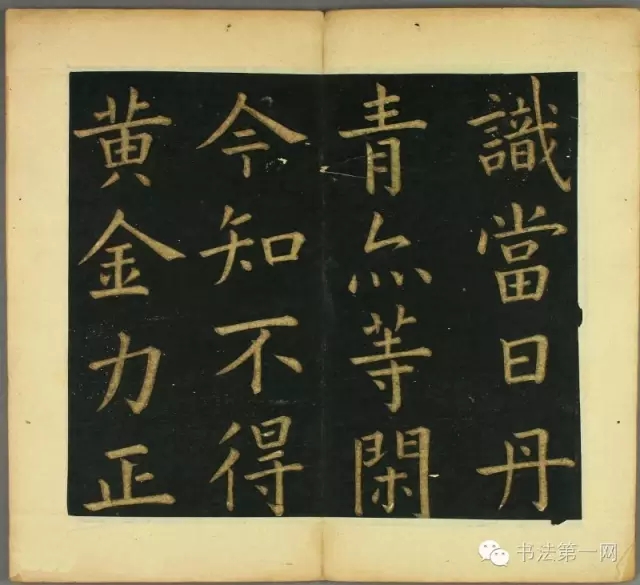 識當日丹
青亦等閑
今知不得
黄金力正
书法第一网